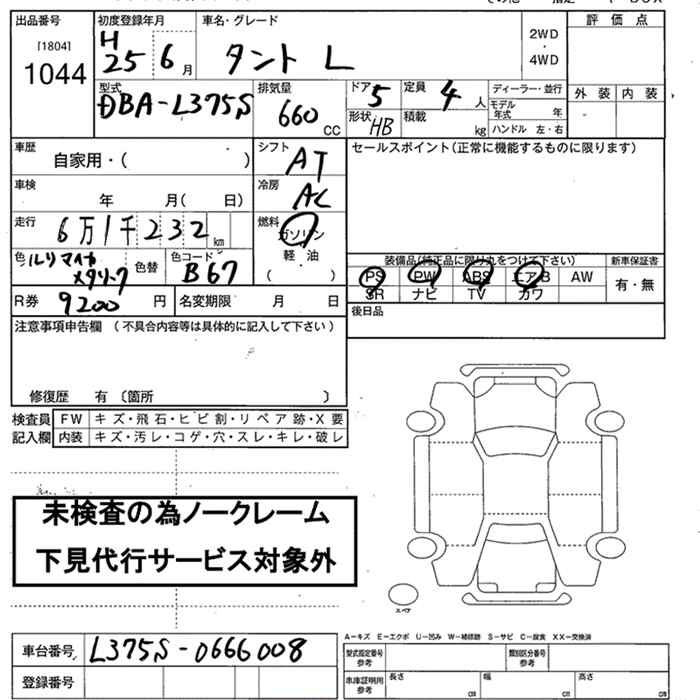 出品番号 初度登録年月 車名・グレード 評価点
[1804] 1044 H 25 6月 タント L 2WD・4WD
型式 排気量 ドア 5 定員 4人 ディーラー・並行 外装 内装
DBA-L375S 660 CC 形状 HB 積載 kg モデル年式 年
ハンドル 左・右
車歴 シフト セールスポイント(正常に機能するものに限ります)
自家用・( ) AT
車検 冷房
年 月( 日) AC
走行 6万1千232km 燃料
ガソリン
色 ルリマイカメタリック 色替 色コード B67 軽油
( )
装備品(純正品に限り丸をつけて下さい) 新車保証書
PS PW ABS エアB AW 有・無
SR ナビ TV カワ
R券 9200円 名変期限 月 日 後日品
注意事項申告欄 (不具合内容等は具体的に記入して下さい)
修復歴 有 〔箇所 〕
検査員 FW キズ・飛石・ヒビ割・リペア跡・X要
記入欄 内装 キズ・汚レ・コゲ・穴・スレ・キレ・破レ
未検査の為ノークレーム
下見代行サービス対象外
スペア
車台番号 L375S-0666008
登録番号
A-キズ E-エクボ U-凹み W-補修跡 S-サビ C-腐食 XX-交換済
型式指定番号 参考 類別区分番号 参考
車庫証明用 参考 長さ cm 幅 cm 高さ cm